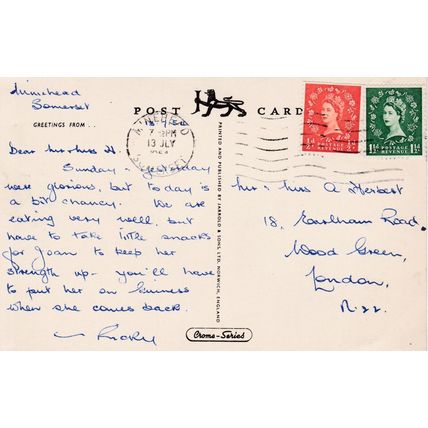 Minehead
Somerset
POST CARD
GREETINGS FROM...
MINEHEAD
7 PM
13 JLY
SOMERSET
½D
POSTAGE
REVENUE
1½D 1½D
POSTAGE
REVENUE
Dear Mr & Mrs H.
Sunday & yesterday
were glorious, but to-day is
a bit chancy. We are
eating very well, but
have to take little snacks
for Joan to keep her
strength up - you'll have
to put her on Guiness
when she comes back.
Ricky
PRINTED AND PUBLISHED BY JARROLD & SONS, LTD. NORWICH, ENGLAND
Mr & Mrs A Herbert
18, Earlham Road,
Wood Green,
London,
N.22.
Crome-Series